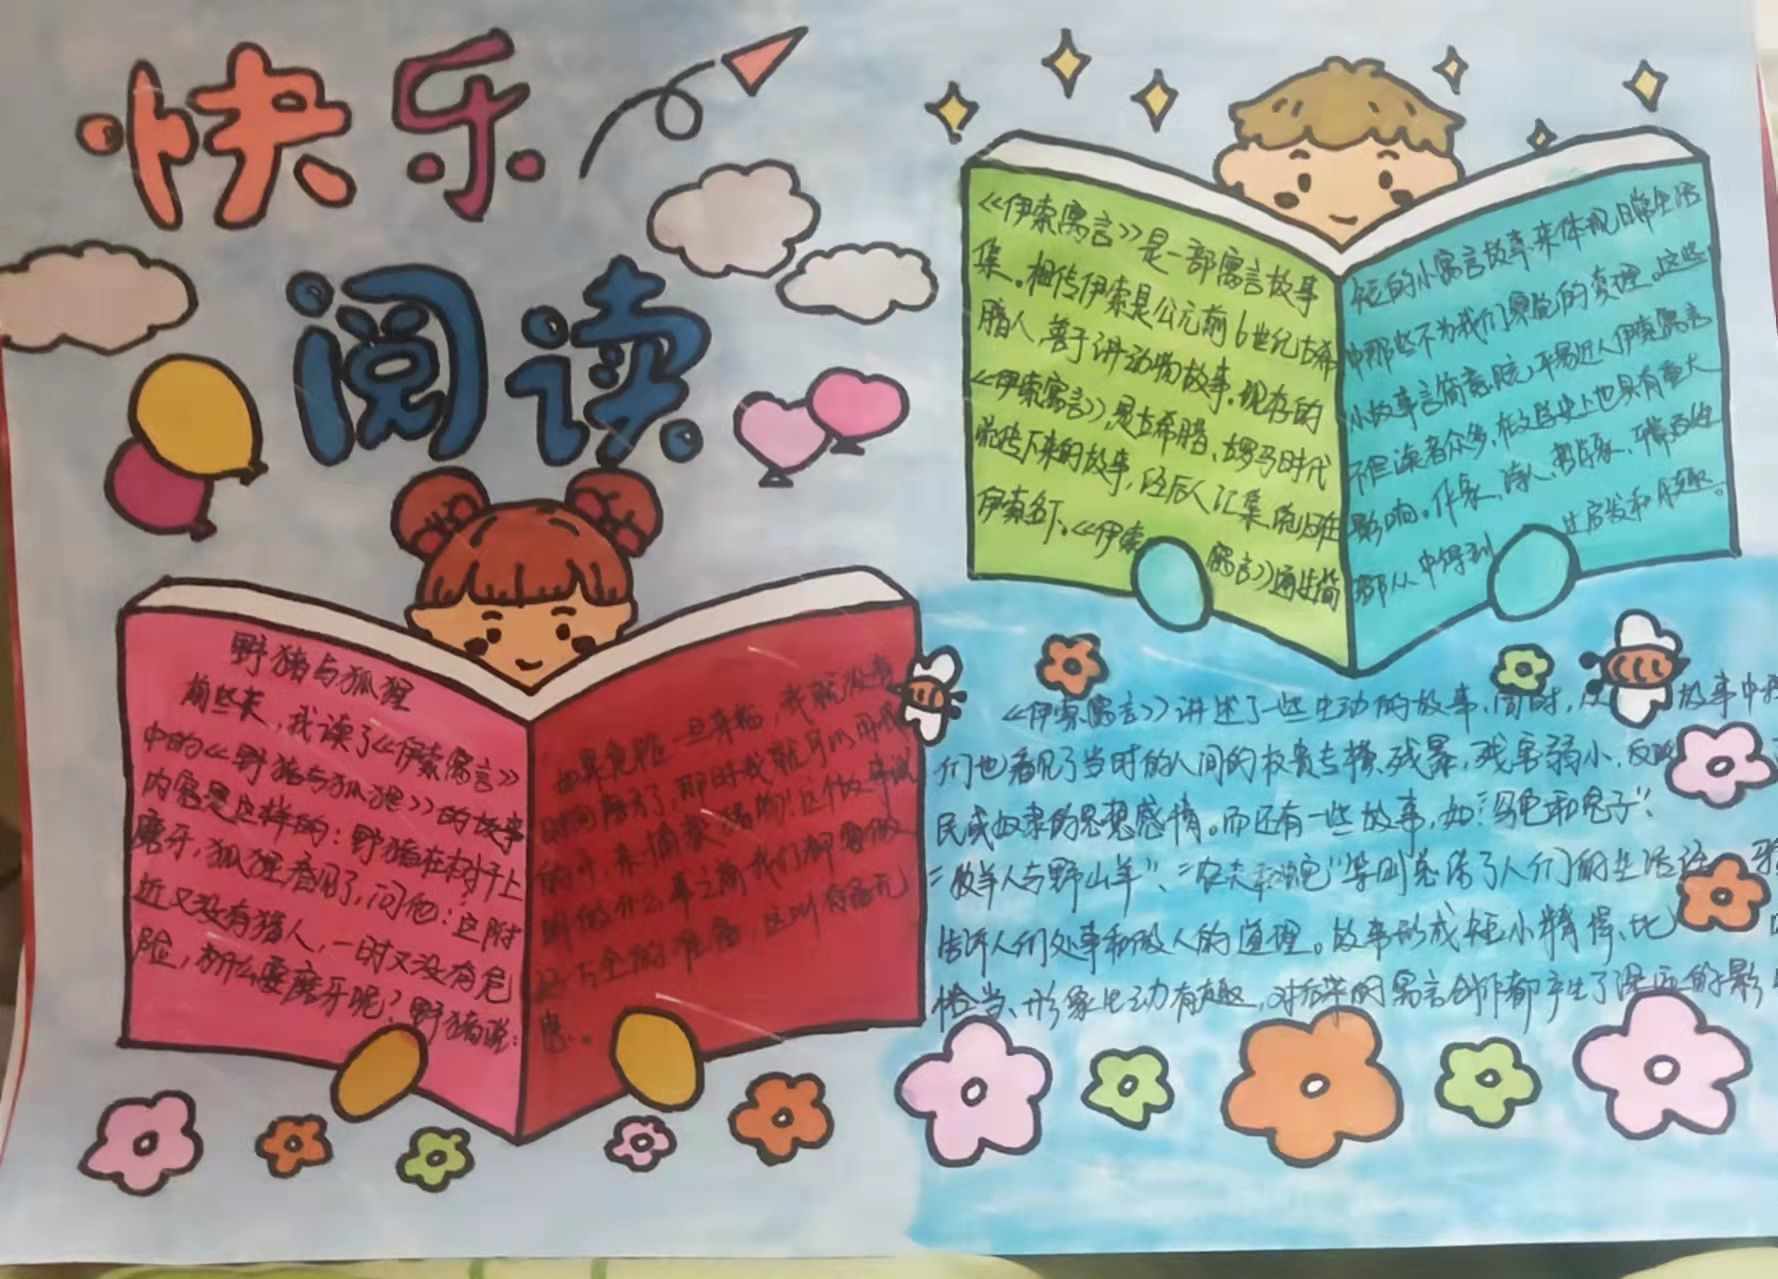 快乐
阅读
野猪与狐狸
前些天，我读了《伊索寓言》
中的《野猪与狐狸》的故事
内容是这样的：野猪在树干上
磨牙，狐狸看见了，问他：这附
近又没有猎人，一时又没有危
险，为什么要磨牙呢？野猪说：
如果危险一旦来临，我就没有
时间磨牙了，那时我就可以用
的牙，来
做什么事之前我们都要做
好万全的准备，这叫有备无
患。
《伊索寓言》是一部寓言故事
集。相传伊索是公元前6世纪古希
腊人，善于讲动物故事。现存的
《伊索寓言》，是古希腊、古罗马时代
流传下来的故事，经后人汇集，统归在
伊索名下。《伊索寓言》通过简
短的小寓言故事来体现日常生活
中那些不为我们察觉的真理。这些
小故事言简意赅，平易近人伊索寓言
不但读者众多，在文学史上也具有重大
影响。作家，诗人，哲学家，平常百姓
都从中得到过启发和乐趣。
《伊索寓言》讲述了一些生动的故事，同时，从故事中我
们也看见了当时的人间的权贵专横、残暴，残害弱小，反映
民或奴隶的思想感情。而还有一些故事，如：“乌龟和兔子”
“牧羊人与野山羊”、“农夫和蛇”等则总结了人们的生活经
告诉人们处事和做人的道理。故事形式短小精悍、比
恰当、形象生动有趣，对后世的寓言创作都产生了深远的影